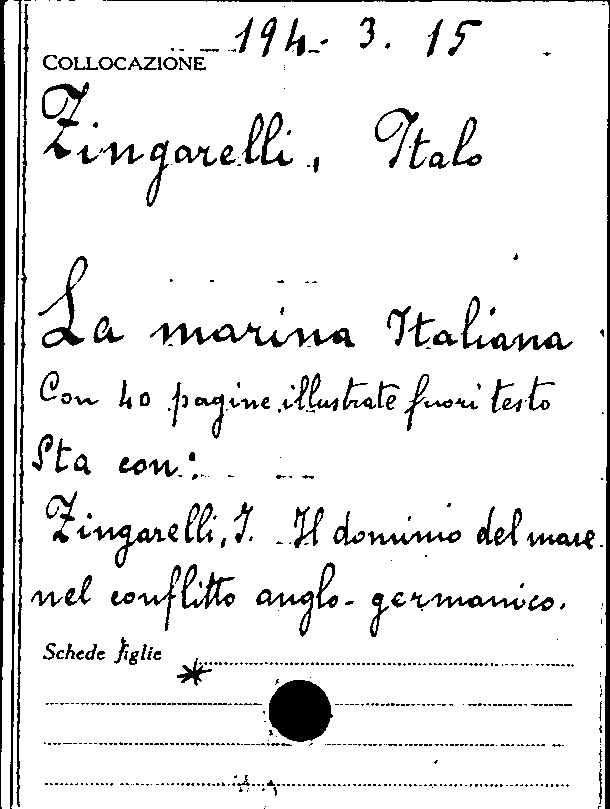 194. 3. 15
COLLOCAZIONE
Zingarelli, Italo
La marina Italiana
Con 40 pagine illustrate fuori testo
Sta con:
Zingarelli, I. Il dominio del mare
nel conflitto anglo-germanico.
Schede figlie *